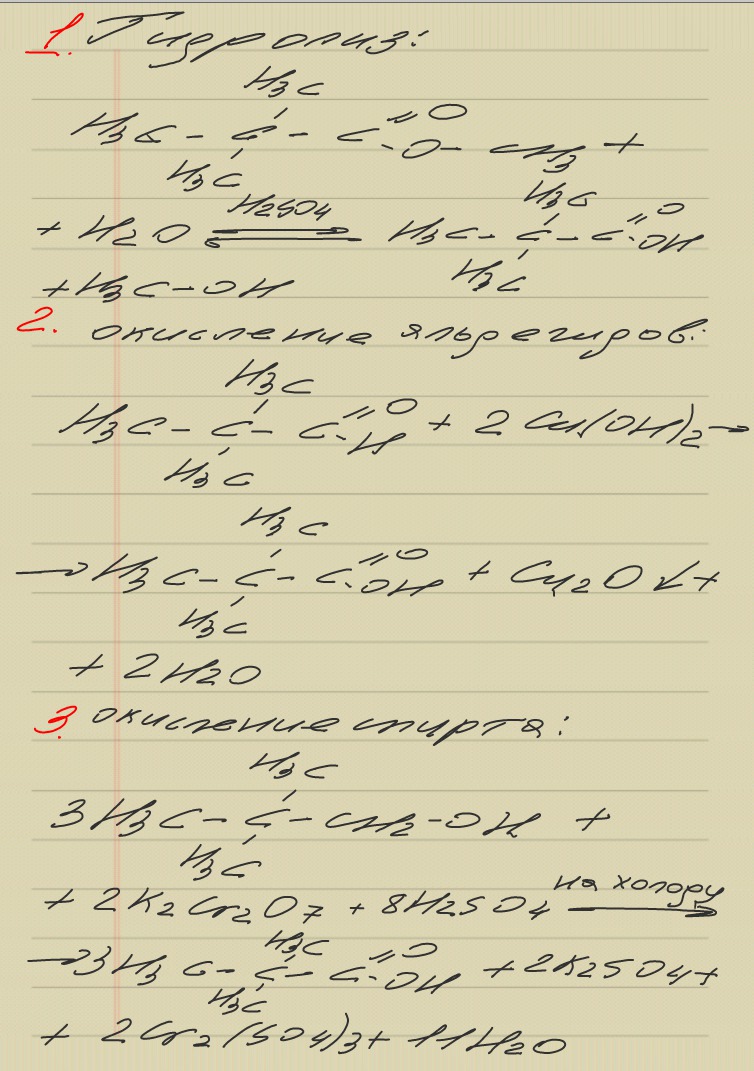 1. Гидролиз:
H3C
H3C - C - C =O
O - CH3 +
H3C
+ H2O H2SO4 ⇌ H3C - C - C =O
OH
H3C
H3C
+ H3C - OH
2. окисление альдегидов:
H3C
H3C - C - C =O
H + 2 Cu(OH)2 →
H3C
H3C
→ H3C - C - C =O
OH + Cu2O ↓ +
H3C
+ 2H2O
3. окисление спирта:
H3C
3H3C - C - CH2 - OH +
H3C
+ 2K2Cr2O7 + 8H2SO4 на холоду →
H3C
→ 3H3C - C - C =O
OH + 2K2SO4 +
H3C
+ 2Cr2(SO4)3 + 11H2O